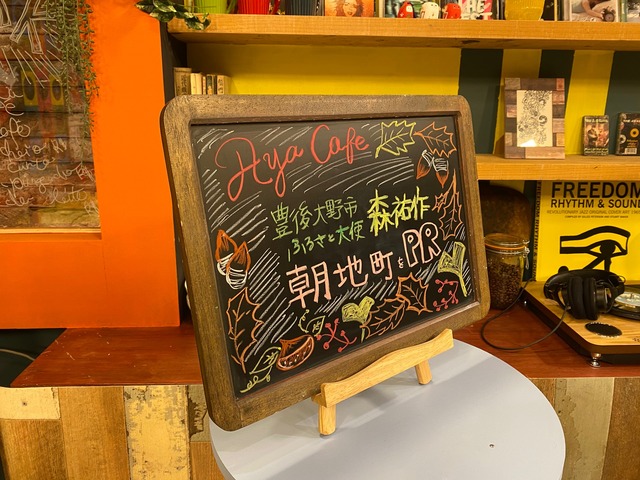 Aya Cafe
豊後大野市 森祐作
ふるさと大使
朝地町をPR
FREEDOM
RHYTHM & SOUND
REVOLUTIONARY JAZZ ORIGINAL COVER ART